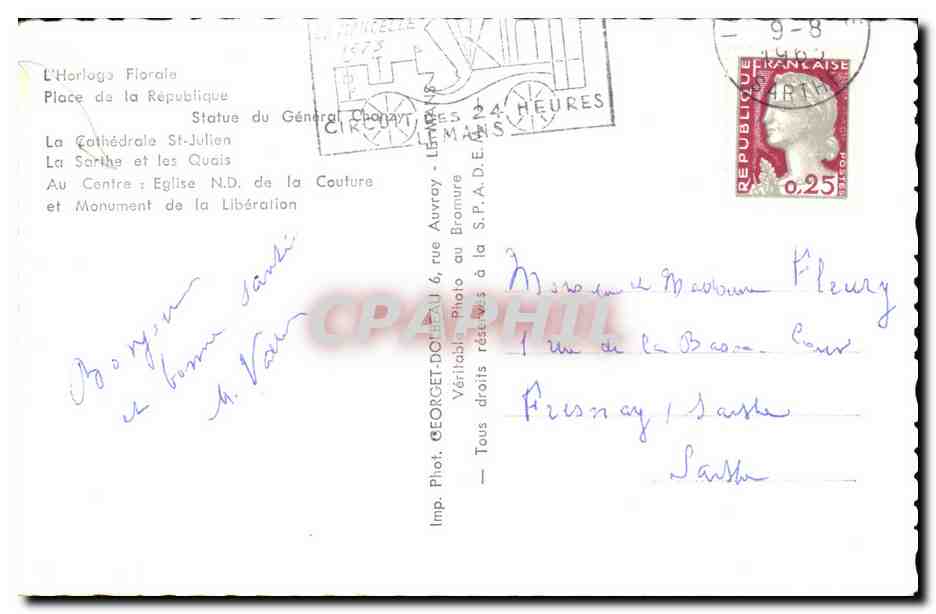 L'Horloge Florale
Place de la République
Statue du Général Chanzy
La Cathédrale St-Julien
La Sarthe et les Quais
Au Centre : Eglise N.D. de la Couture
et Monument de la Libération
1873
CIRCUIT DES 24 HEURES
LE MANS
9-8
SARTHE
REPUBLIQUE
FRANÇAISE
POSTES
0,25
Bonjour
et bonne santé
M.
Imp. Phot. GEORGET-DOLBEAU 6, rue Auvray - LE MANS
Véritable Photo au Bromure
— Tous droits réservés à la S.P.A.D.E.M.
Monsieur et Madame Fleury
1 rue de la Basse Cour
Fresnay / Sarthe
Sarthe
CPAPHIL